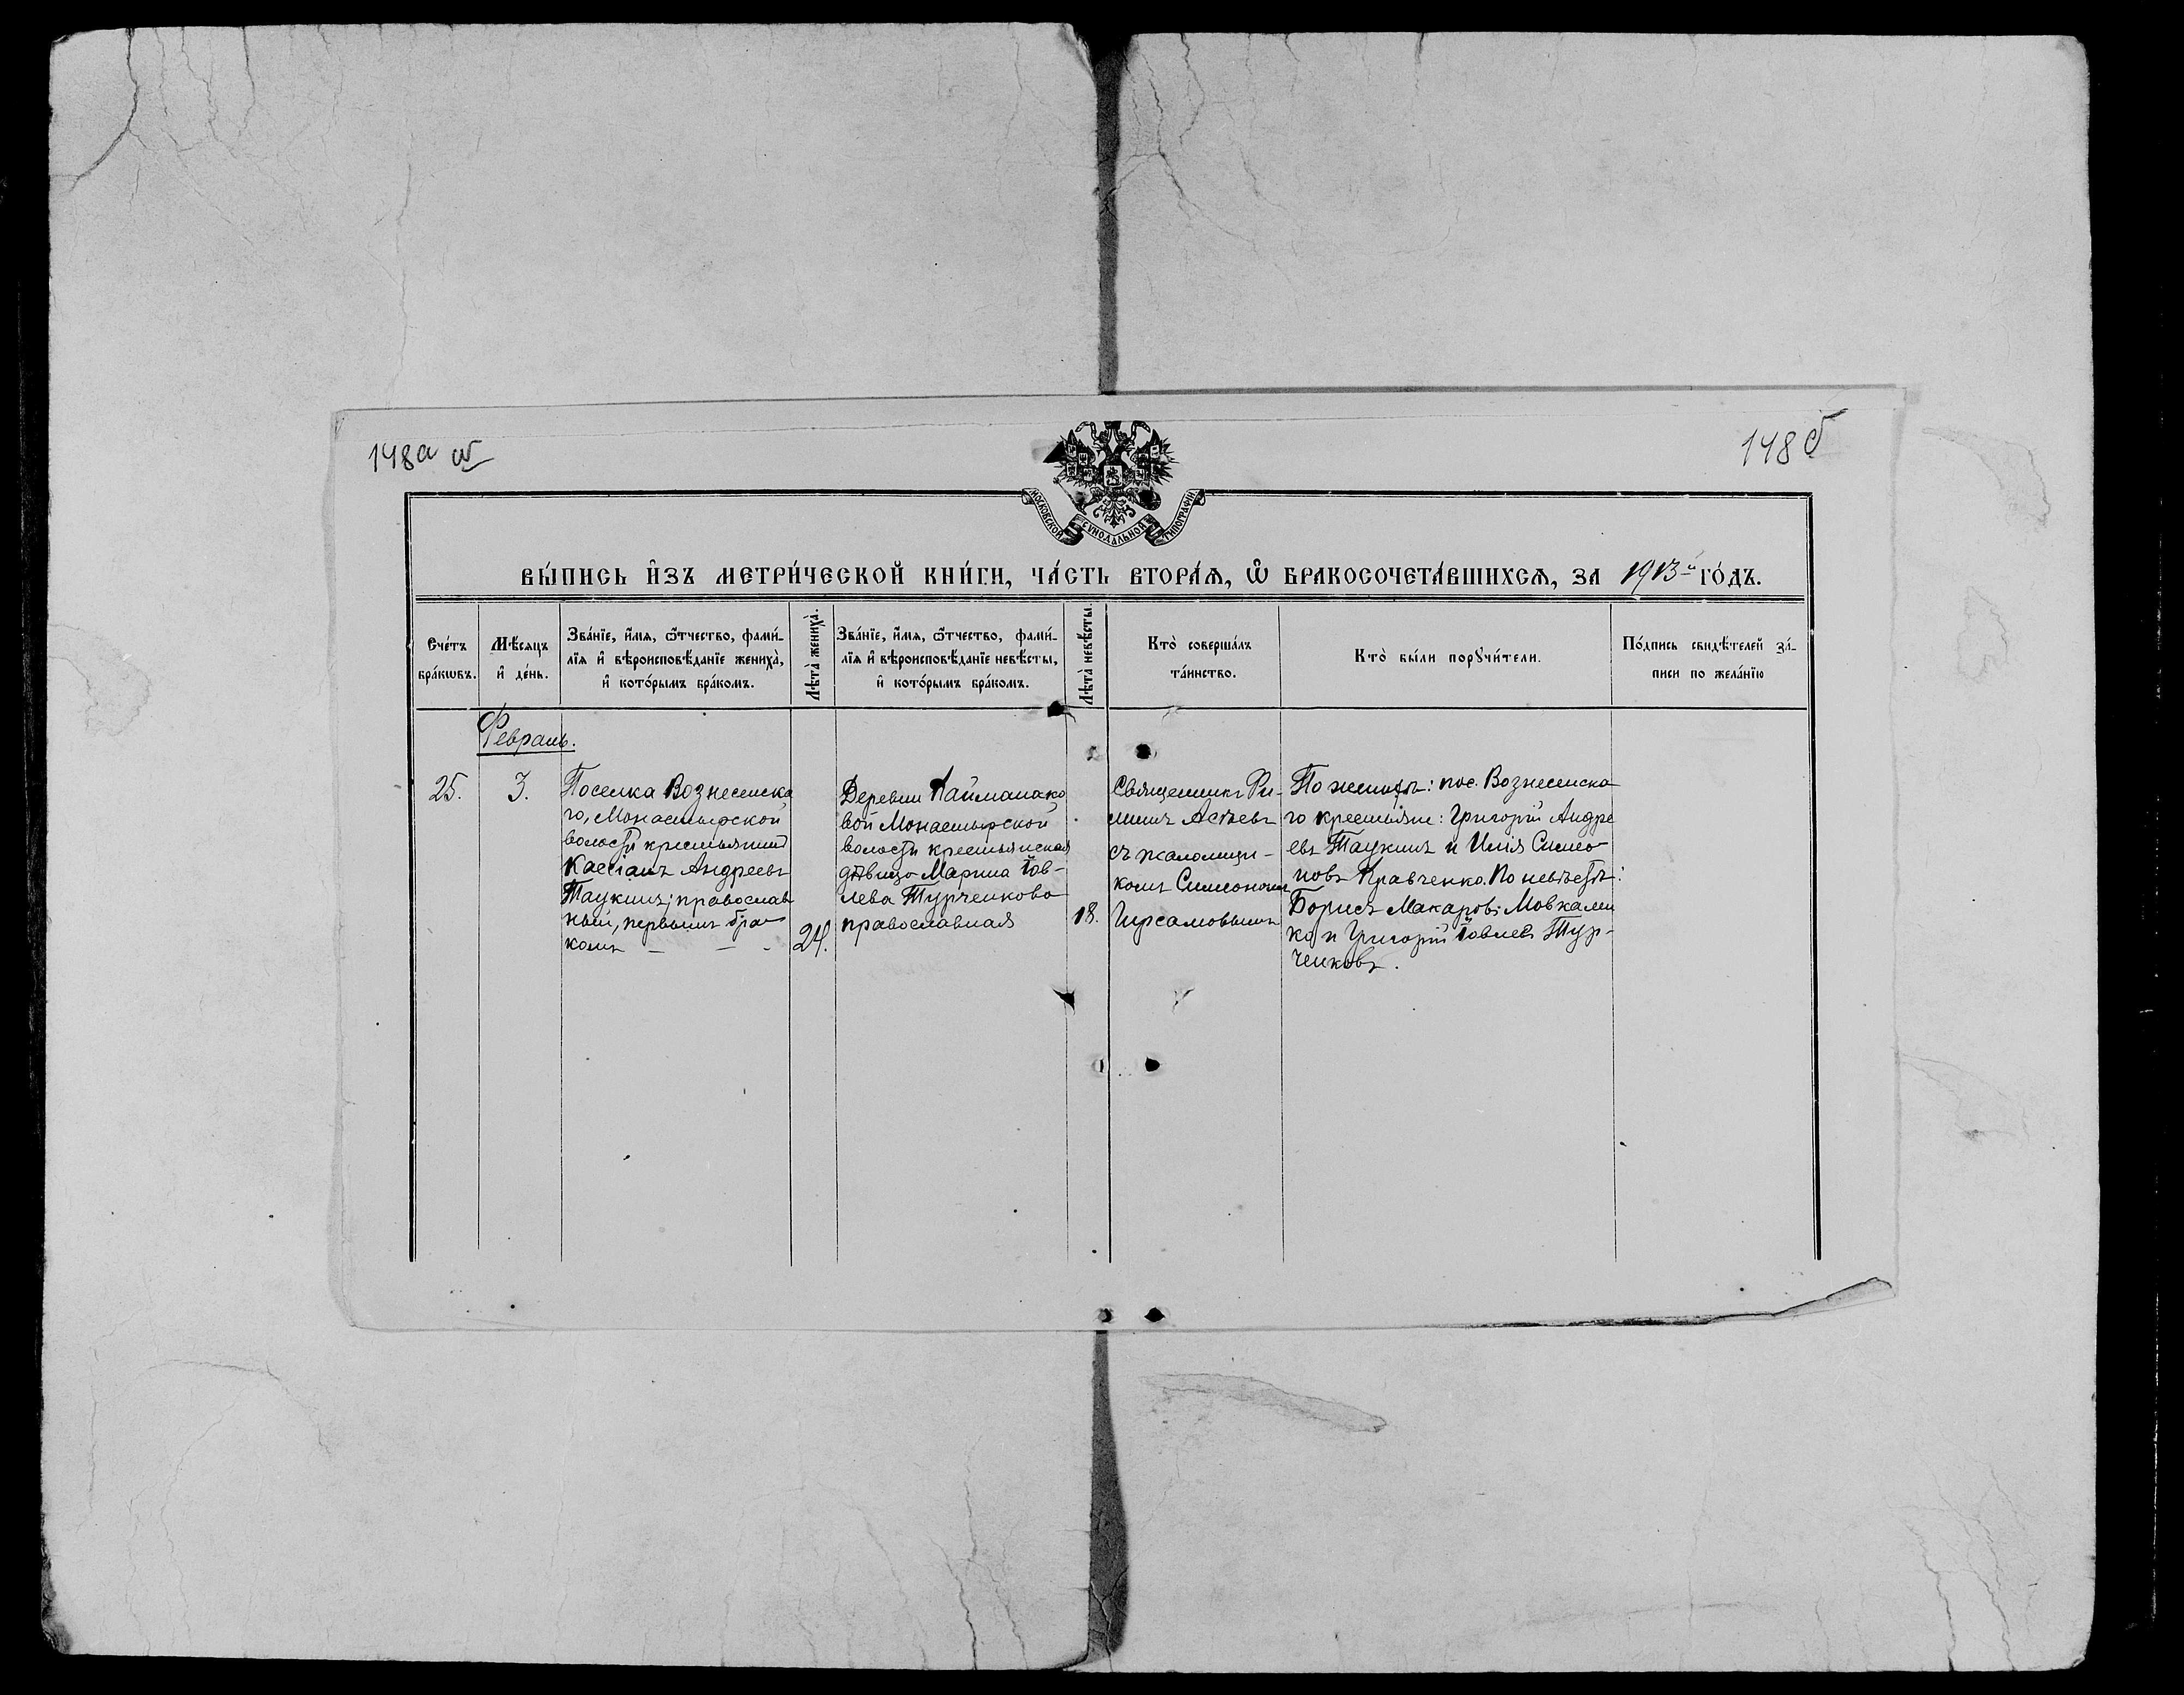 148а
148б
МОСКОВСКОЙ СѴНОДАЛЬНОЙ ТИПОГРАФІИ
ВЫ́ПИСЬ И҆ЗЪ МЕТРИ́ЧЕСКОЙ КНИ́ГИ, ЧА́СТЬ ВТОРА́Ѧ, Ѽ БРАКОСОЧЕТА́ВШИХСѦ, ЗА 1913-й ГО́ДЪ.
Сче́тъ
бра́кѡвъ.
Мѣ́сѧцъ
и҆ де́нь.
Зва́нїе, и҆́мѧ, ѻ҆́тчество, фами́-
лїѧ и҆ вѣроисповѣ́данїе жениха̀,
и҆ кото́рымъ бра́комъ.
Лѣта̀ жениха̀.
Зва́нїе, и҆́мѧ, ѻ҆́тчество, фами́-
лїѧ и҆ вѣроисповѣ́данїе невѣ́сты,
и҆ кото́рымъ бра́комъ.
Лѣта̀ невѣ́сты.
Кто̀ соверша́лъ
та́инство.
Кто̀ бы́ли порꙋчи́тели.
По́дпись свидѣ́телей за́-
писи по жела́нїю
Февраль.
25.
3.
Поселка Вознесенска
го, Монастырской
волости крестьянин
Кассіанъ Андреевъ
Таукинъ; православ
ный, первымъ бра
комъ
24.
Деревни Найманако
вой Монастырской
волости крестьянская
дѣвица Марина Іов-
лева Турченкова
православная
18.
Священникъ Фи-
липпъ Асѣевъ
съ псаломщи-
комъ Симеономъ
По женихѣ: пос. Вознесенска
го крестьяне: Григорій Андре
евъ Таукинъ и Илія Симео
новъ Кравченко. По невѣстѣ:
Борисъ Макаровъ Мовкален
ко и Григорій Іовлевъ Тур-
ченковъ.